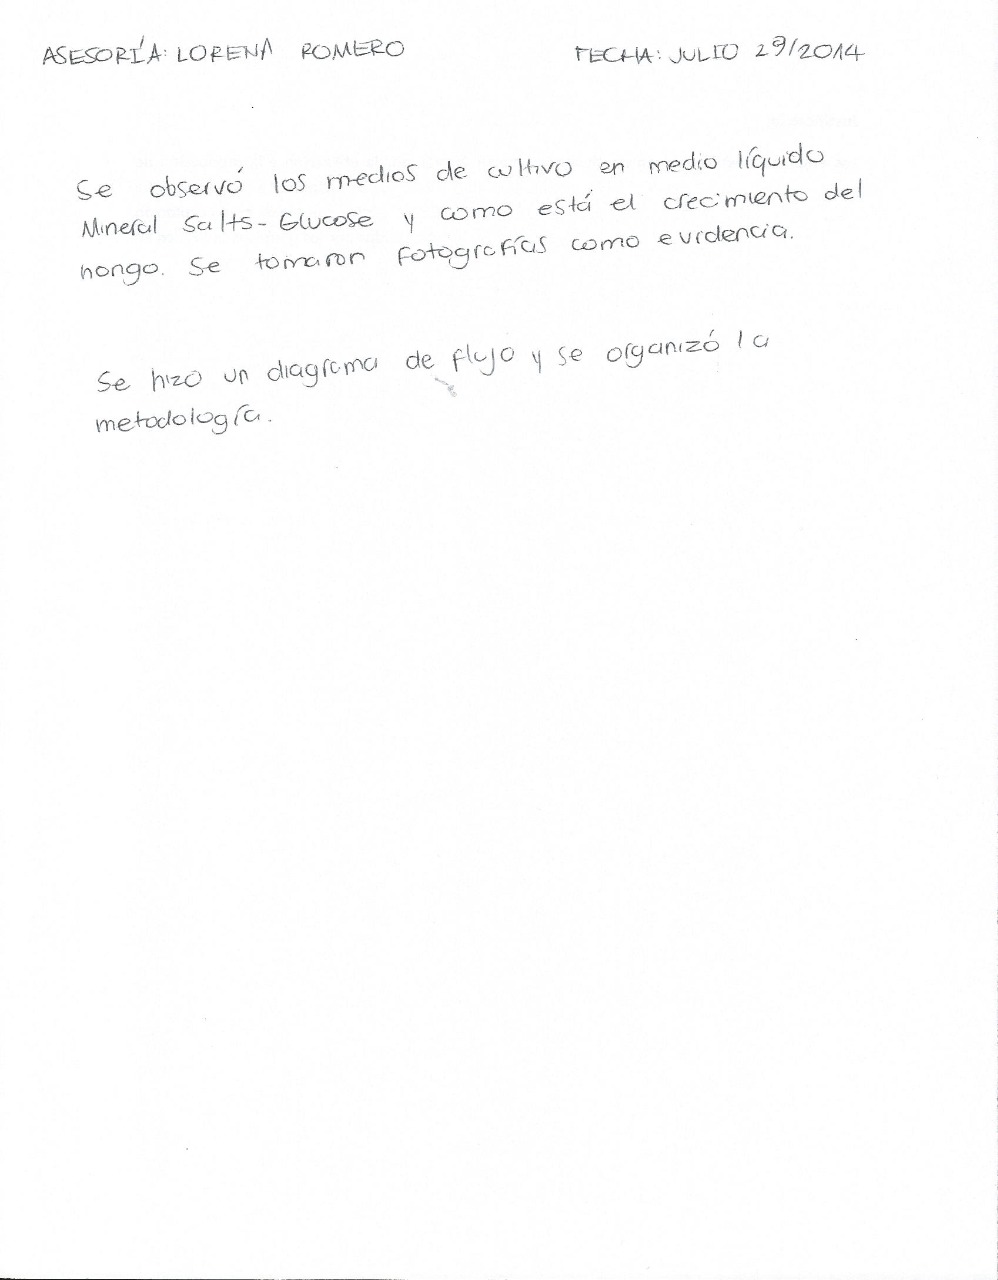 ASESORÍA: LORENA ROMERO FECHA: JULIO 29/2014
Se observó los medios de cultivo en medio líquido
Mineral Salts-Glucose y como está el crecimiento del
hongo. Se tomaron fotografías como evidencia.
Se hizo un diagrama de flujo y se organizó la
metodología.